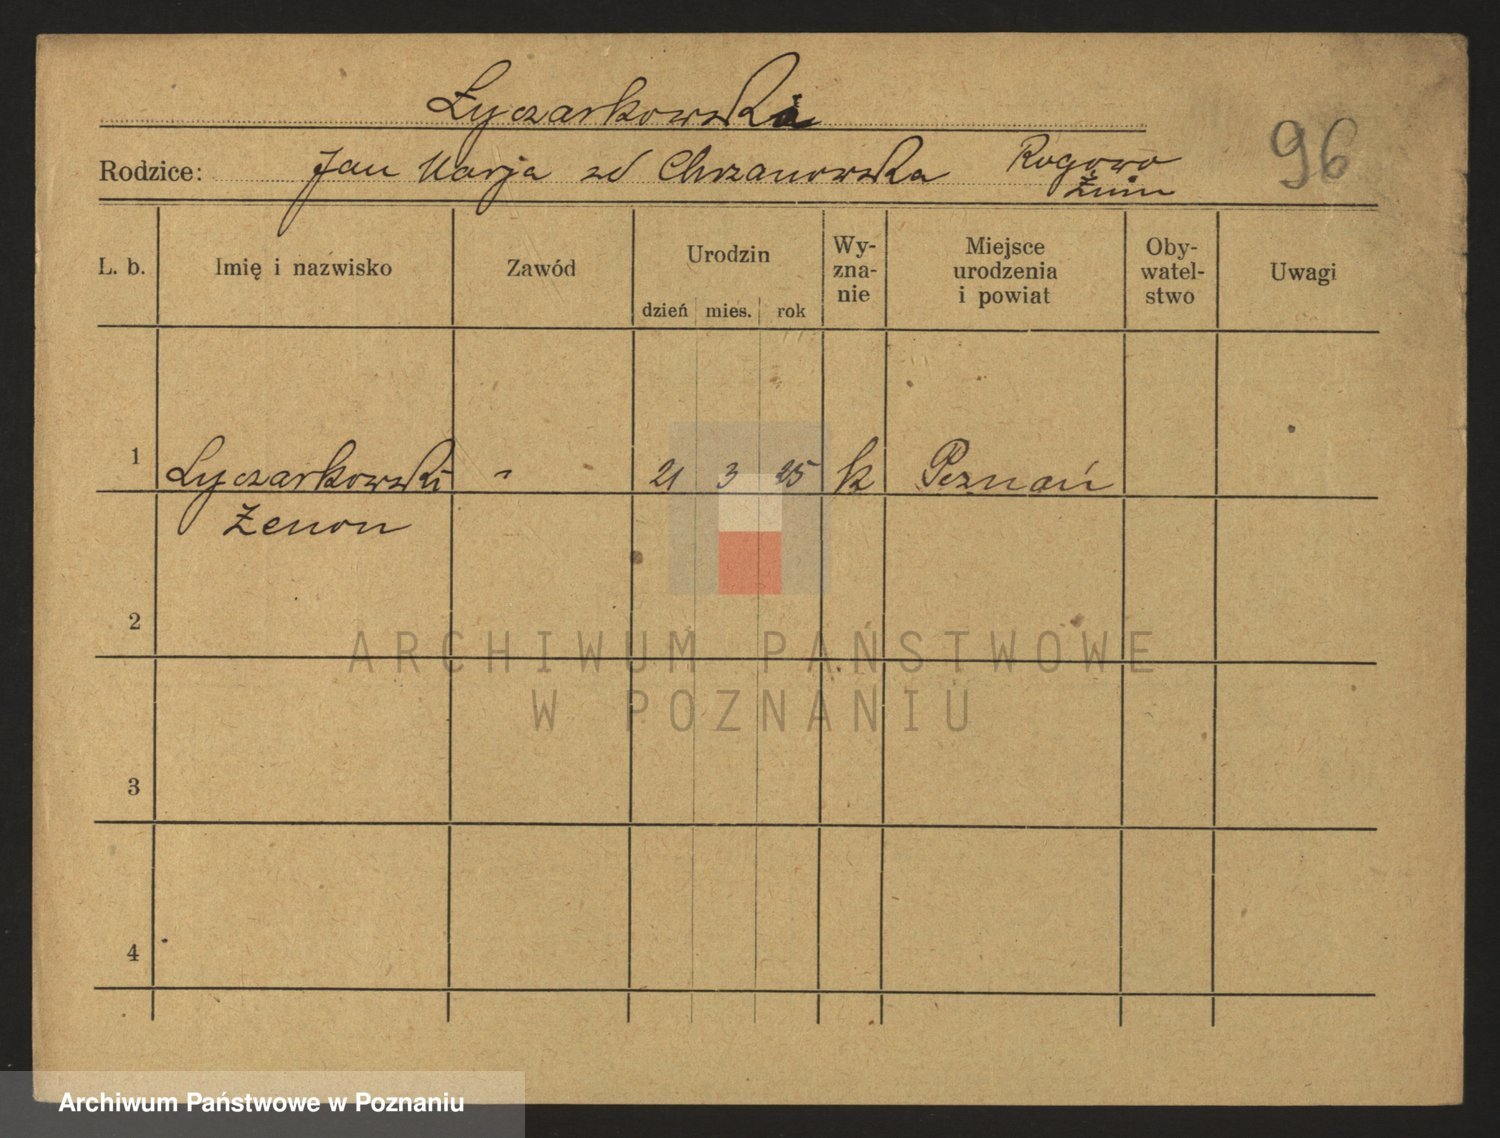 Łyczarkowski
Rodzice: Jan Marja zd Chrzanowska Rogowo
Żnin
96
L. b. Imię i nazwisko Zawód Urodzin dzień mies. rok Wy-zna-nie Miejsce urodzenia i powiat Oby-watel-stwo Uwagi
1 Łyczarkowski " 21 3 25 k Poznań
Zenon
2
ARCHIWUM PAŃSTWOWE
W POZNANIU
3
4
Archiwum Państwowe w Poznaniu